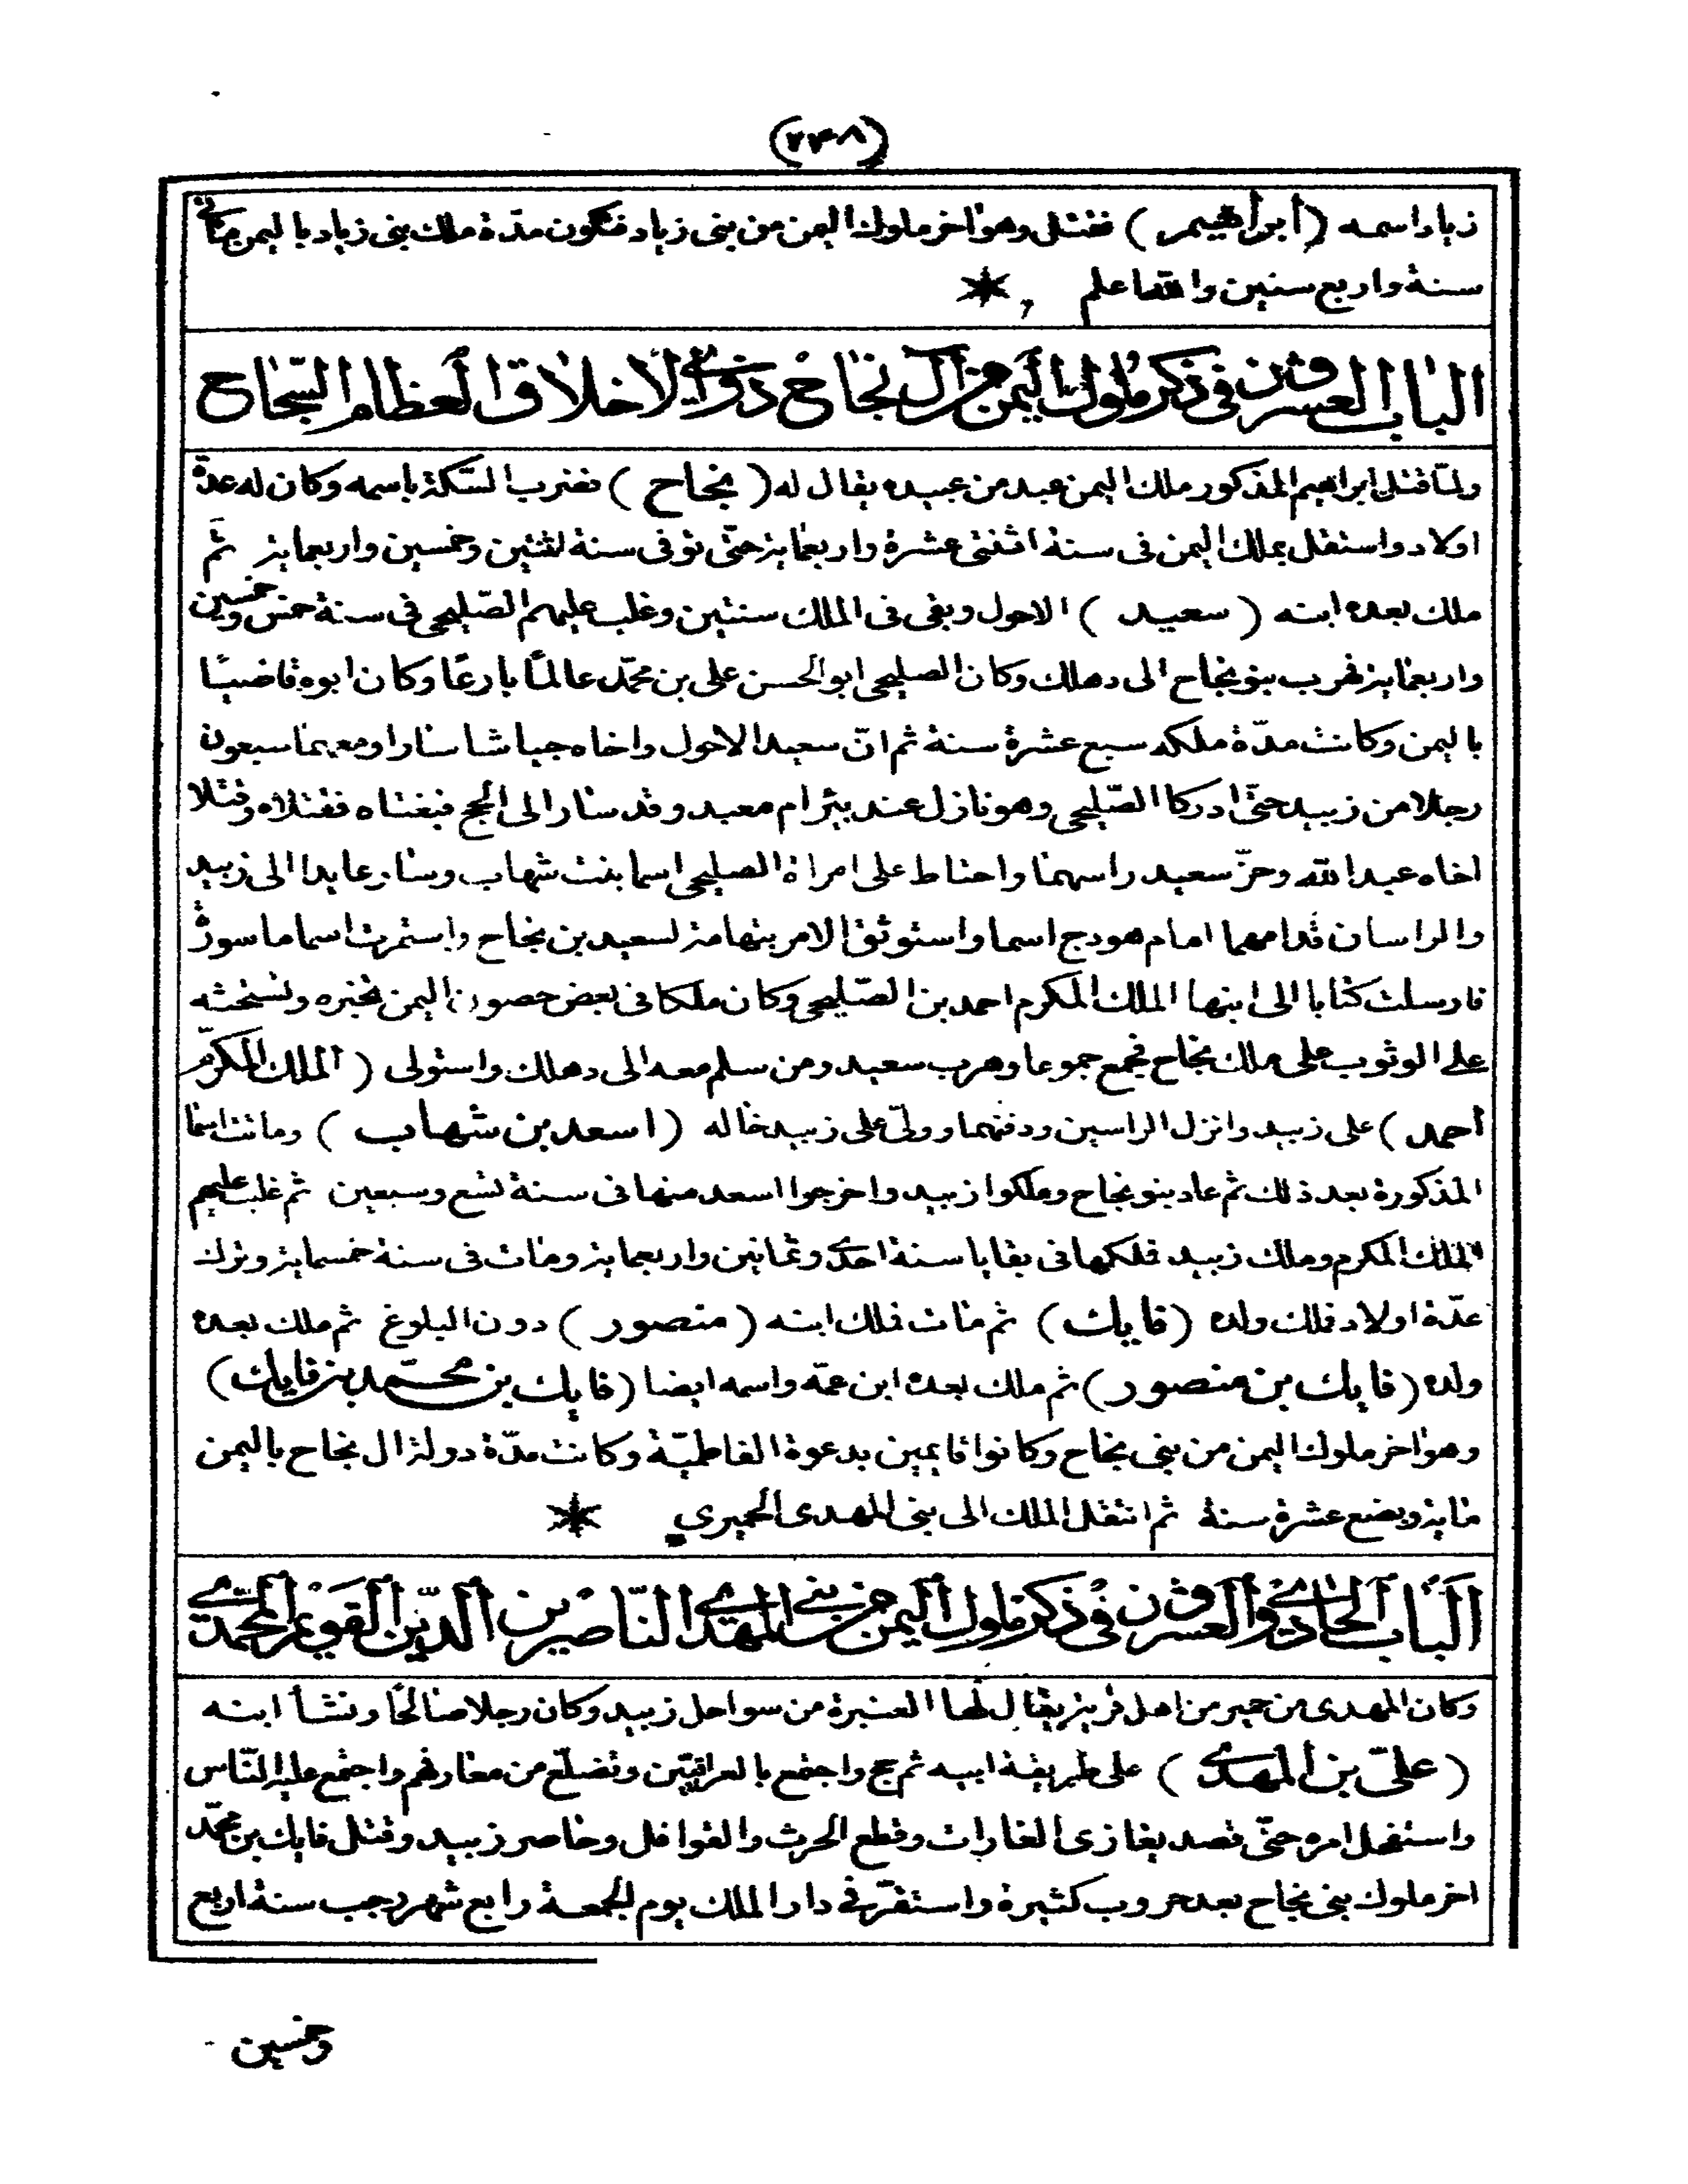 (٢٤٨)
زياد اسمه (ابراهيم) فقتلى وهو اخر ملوك اليمن من بنى زياد فتكون مدّة ملك بنى زياد باليمن مائتى
سنة واربع سنين والله اعلم
الباب العشرون فى ذكر ملوك اليمن من آل نجاح ذوى الاخلاق العظام السّجاح
ولمّا قتل ابراهيم المذكور ملك اليمن عبد من عبيده يقال له (نجاح) فضرب السّكة باسمه وكان له عدّة
اولاد واستقل بملك اليمن فى سنة اثنتى عشرة واربعماية حتّى توفى سنة اثنتين وخمسين واربعماية ثمّ
ملك بعده ابنه (سعيد) الاحول وبقى فى الملك سنتين وغلب عليهم الصّليحى فى سنة خمس وخمسين
واربعماية فهرب بنو نجاح الى دهلك وكان الصليحى ابو الحسن على بن محمّد عالمًا بارعًا وكان ابوه قاضيًا
باليمن وكانت مدّة ملكه سبع عشرة سنة ثم انّ سعيد الاحول واخاه جياشا سارا ومعهما سبعون
رجلا من زبيد حتّى ادركا الصّليحى وهو نازل عند بئر ام معبد وقد سار الى الحج فبغتاه فقتلاه وقتلا
اخاه عبد الله وحزّ سعيد راسهما واحتاط على امراة الصليحى اسما بنت شهاب وسار عايدا الى زبيد
والراسان قدامهما امام هودج اسما واستوثق الامر بتهامة لسعيد بن نجاح واستمرت اسما ماسورة
فارسلت كتابا الى ابنها الملك المكرم احمد بن الصّليحى وكان ملكا فى بعض حصون اليمن تخبره وتستحثه
على الوثوب على ملك نجاح فجمع جموعا وهرب سعيد ومن سلم معه الى دهلك واستولى (الملك المكرّم
احمد) على زبيد وانزل الراسين ودفنهما وولّى على زبيد خاله (اسعد بن شهاب) وماتت اسما
المذكورة بعد ذلك ثم عاد بنو نجاح وملكوا زبيد واخرجوا اسعد منها فى سنة تسع وسبعين ثم غلب عليهم
الملك المكرم وملك زبيد فملكها فى بقايا سنة احدى وثمانين واربعماية ومات فى سنة خمسماية وترك
عدّة اولاد فملك ولده (فايك) ثم مات فملك ابنه (منصور) دون البلوغ ثم ملك بعده
ولده (فايك بن منصور) ثم ملك بعده ابن عمّه واسمه ايضا (فايك بن محمّد بن فايك)
وهو اخر ملوك اليمن من بنى نجاح وكانوا قايمين بدعوة الفاطميّة وكانت مدّة دولة ال نجاح باليمن
ماية وبضع عشرة سنة ثم انتقل الملك الى بنى المهدى الحميرى
الباب الحادى والعشرون فى ذكر ملوك اليمن من بنى المهدى الناصرين الدّين القويم المحمّدى
وكان المهدى من حمير من اهل قرية يقال لها العنبرة من سواحل زبيد وكان رجلا صالحًا ونشأ ابنه
(علىّ بن المهدى) على طريقة ابيه ثم حج واجتمع بالعراقيّين وتضلّع من معارفهم واجتمع عليه النّاس
واستفحل امره حتّى قصد بغازى الغارات وقطع الحرث والقوافل وحاصر زبيد وقتل فايك بن محمّد
اخر ملوك بنى نجاح بعد حروب كثيرة واستقرّ فى دار الملك يوم الجمعة رابع شهر رجب سنة اربع
وخمسين